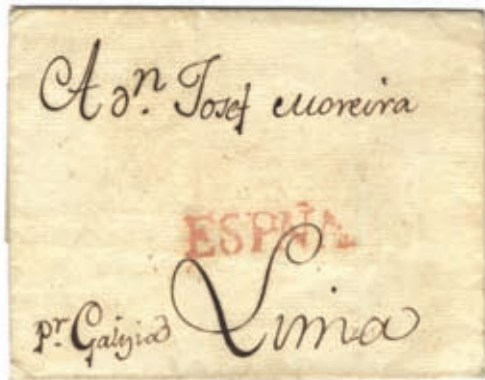 A Dn. Josef Moreira
ESPÑA
pr. Galizia Lima